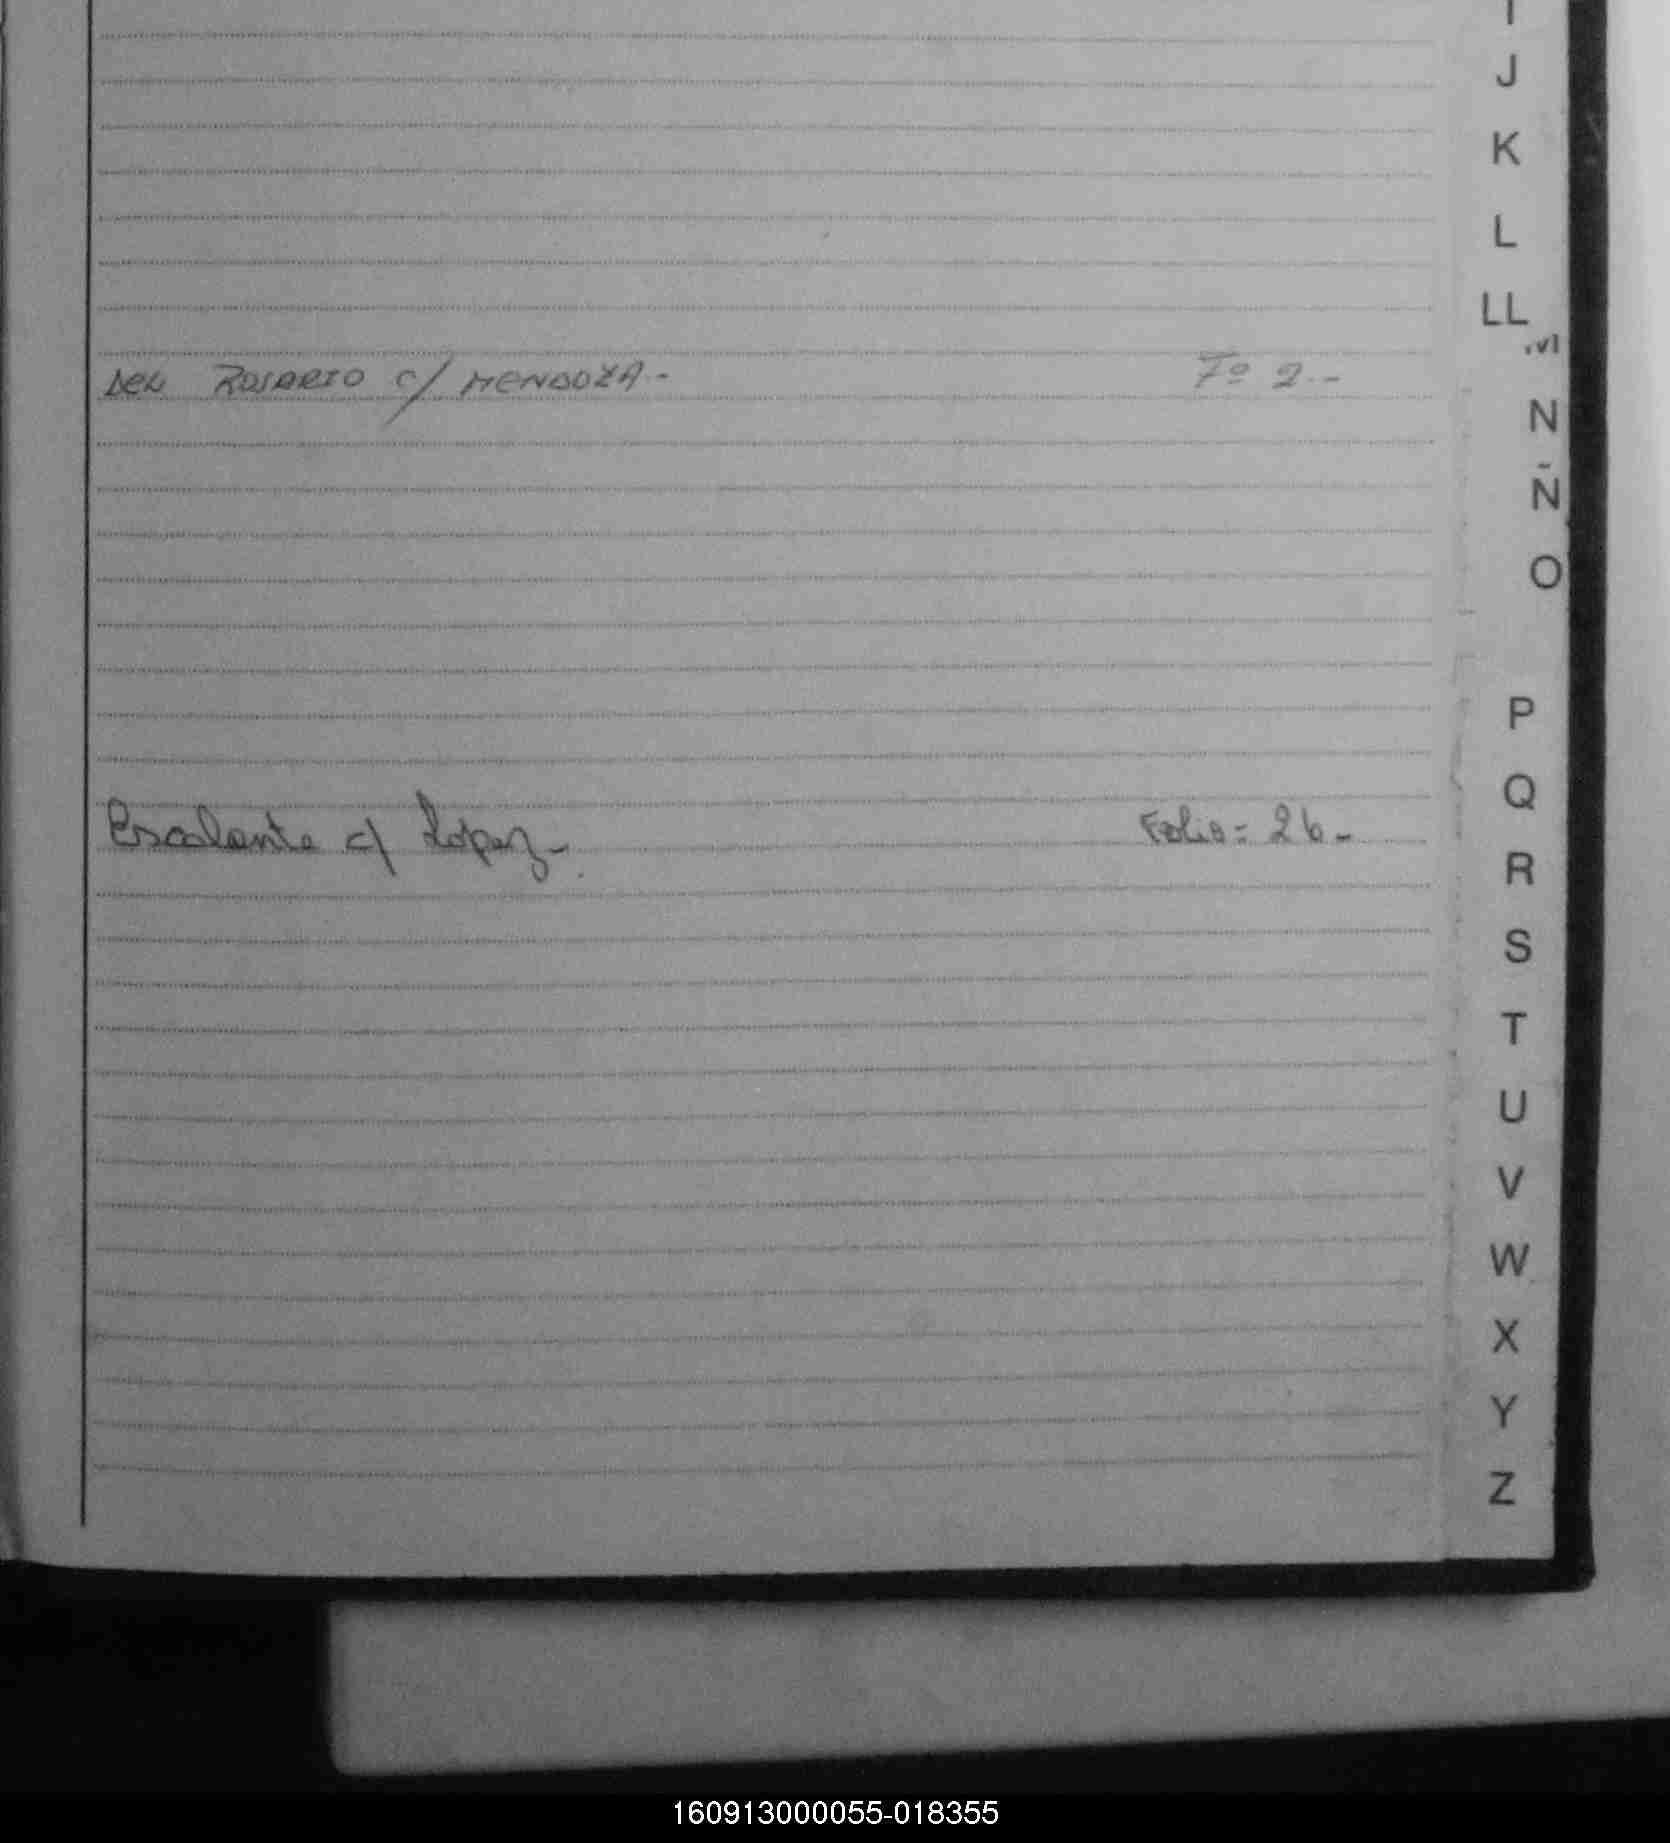 I
J
K
L
LL
DEL ROSARIO c/ MENDOZA.- Fº 2.-
N
Ñ
O
P
Q
Escalante c/ López.- Folio = 26-
R
S
T
U
V
W
X
Y
Z
160913000055-018355